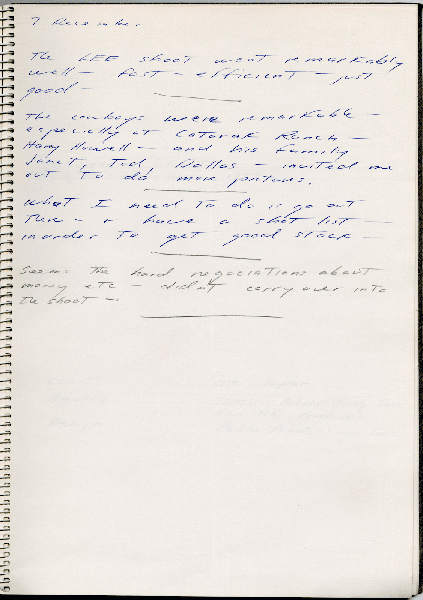 7 December.
The LEE shoot went remarkably
well — fast — efficient — just
good —
The cowboys were remarkable —
especially at Ranch —
Harry Howell — and his family
Janet, Tod, Dallas — invited me
out To do more pictures.
What I need To do is go out
There — & have a shot list —
in order To get good stock —
Seems The hard negociations about
money etc — didn't carry over into
The shoot —